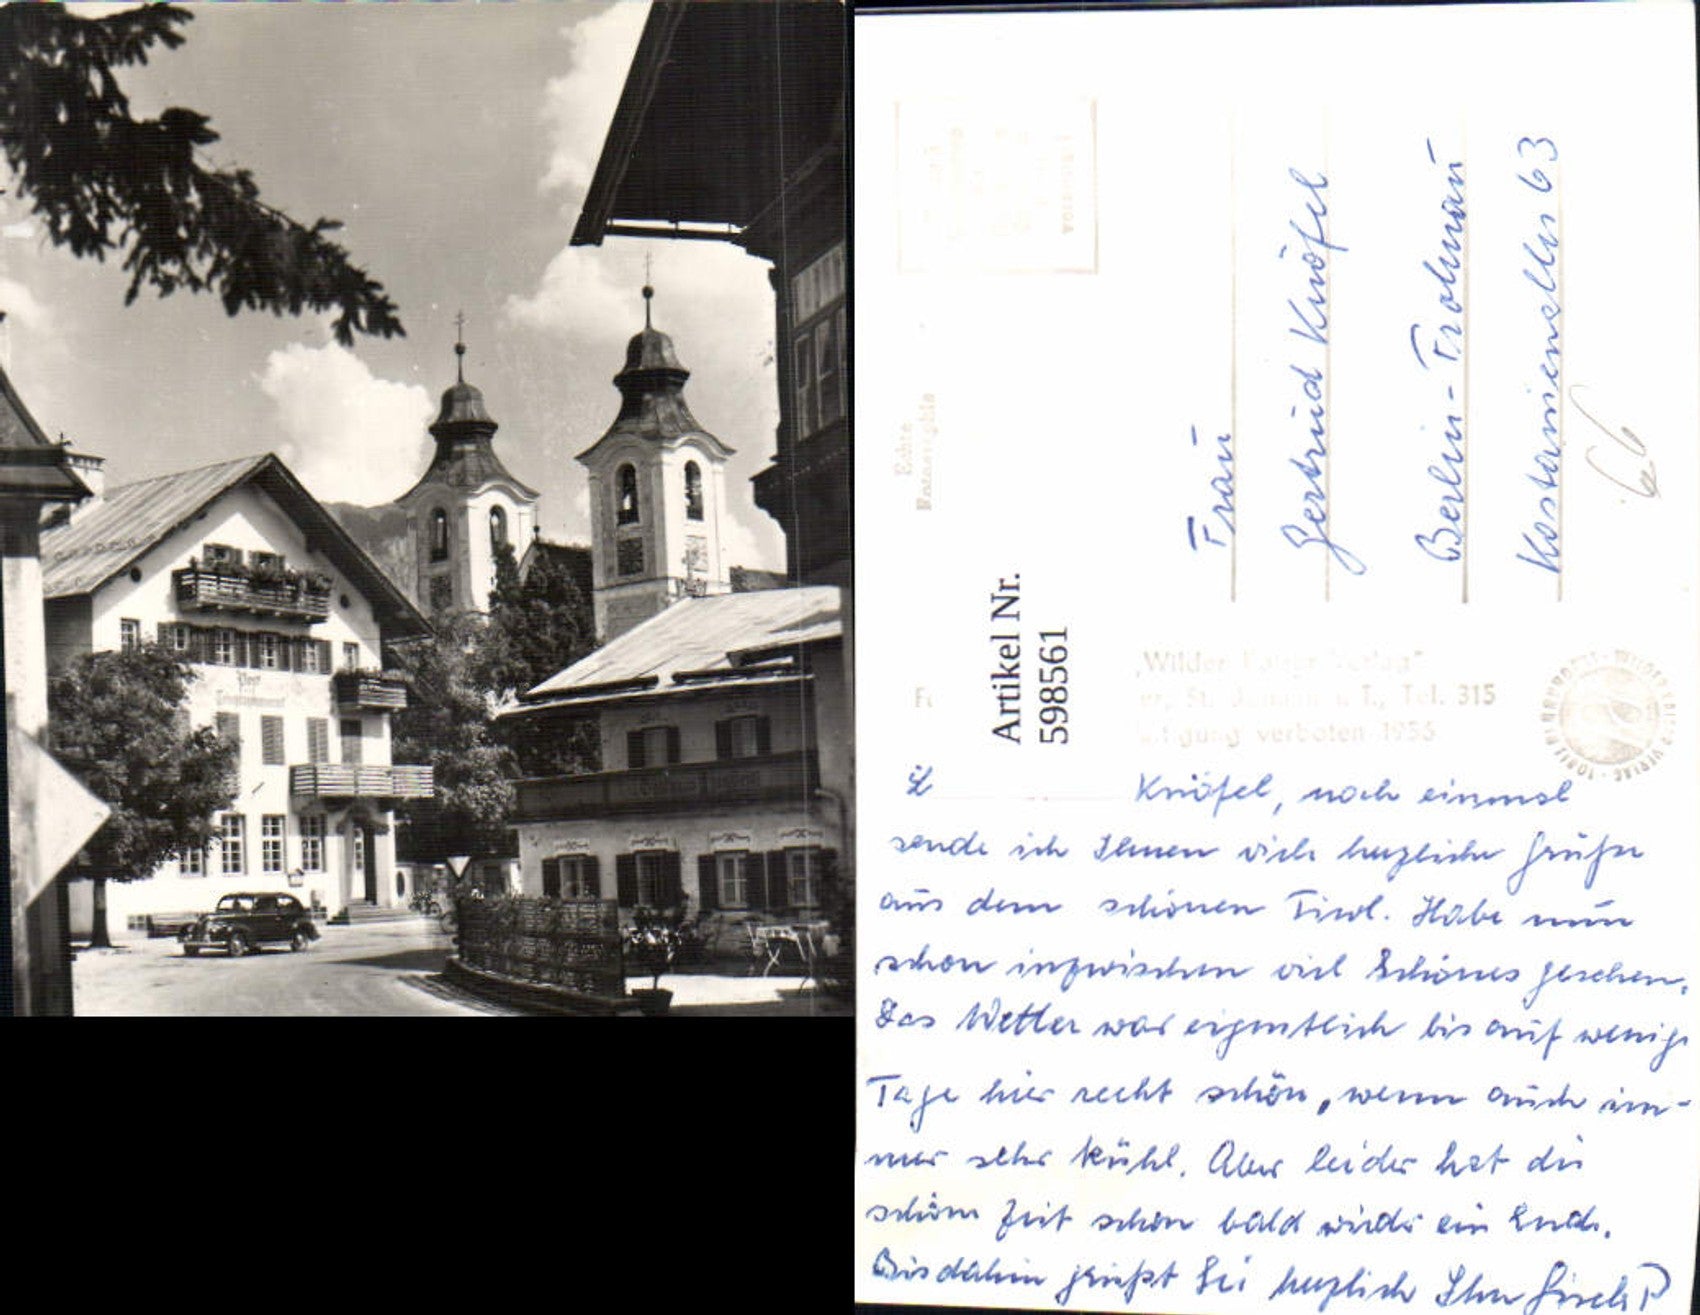 Post
Echte
Frau
Gertrud Knöfel
Berlin-Frohnau
Kastanienallee 63
66
Artikel Nr.
598561
„Wilder Kaiser Verlag“
er, St. Johann i. T., Tel. 315
verboten 1956
L Knöfel, noch einmal
sende ich Ihnen viele herzliche Grüße
aus dem schönen Tirol. Habe nun
schon inzwischen viel Schönes gesehen.
Das Wetter war eigentlich bis auf wenige
Tage hier recht schön, wenn auch im-
mer sehr kühl. Aber leider hat die
schöne Zeit schon bald wieder ein Ende.
Bis dahin grüßt Sie herzlich Ihre Gisela P